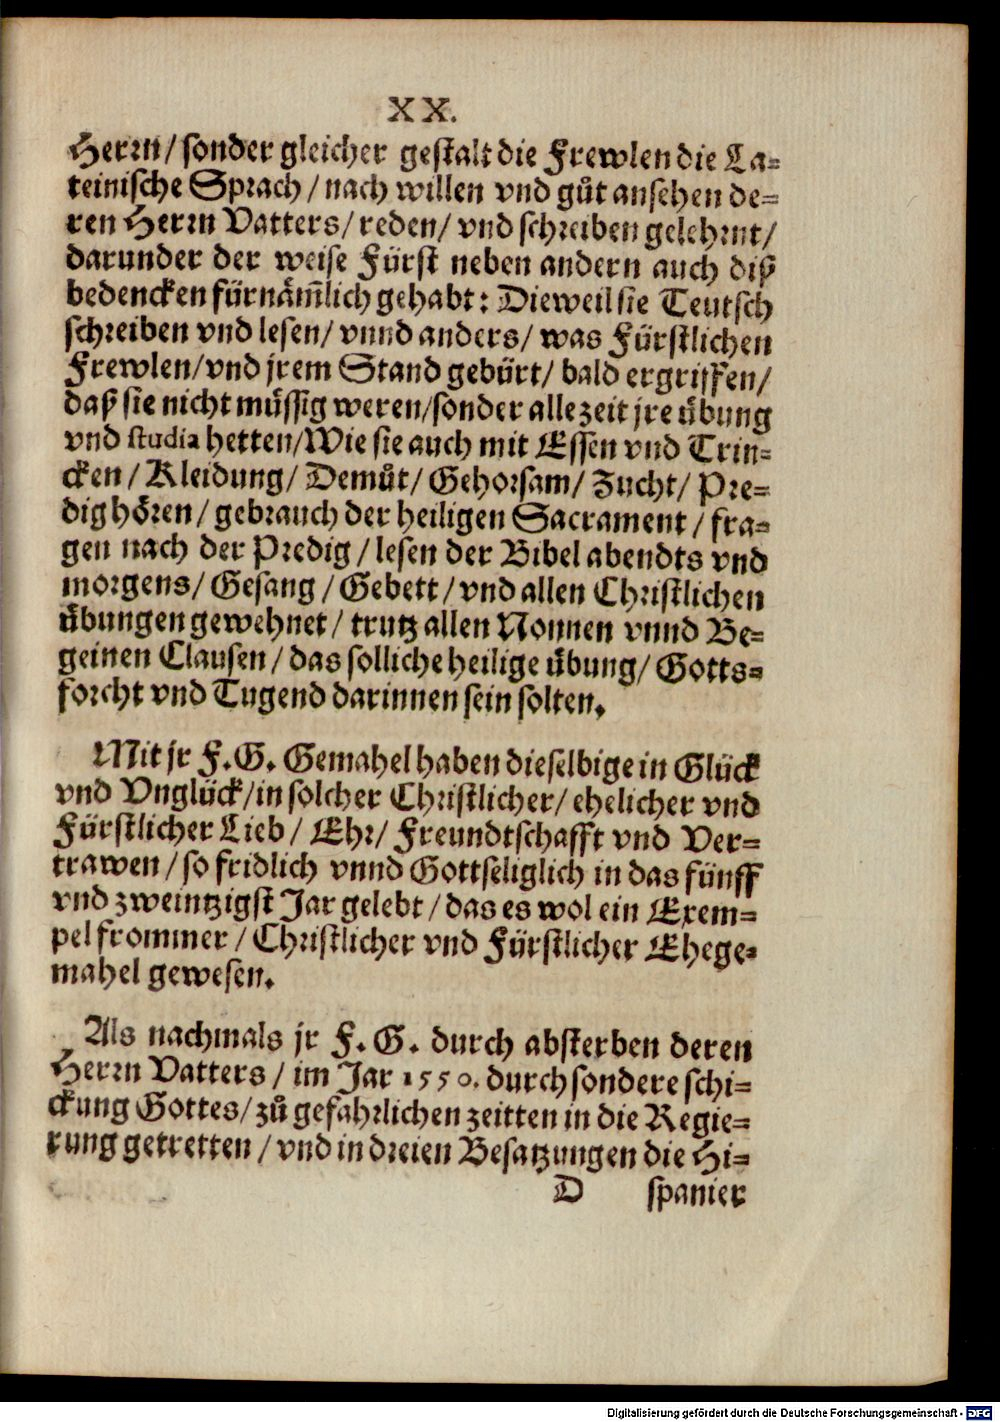 XX.
Herrn/ sonder gleicher gestalt die Frewlen die La-
teinische Sprach/ nach willen vnd gůt ansehen de-
ren Herrn Vatters/ reden/ vnd schreiben gelehrnt/
darunder der weise Fürst neben andern auch diß
bedencken fürnäm̃lich gehabt: Dieweil sie Teutsch
schreiben vnd lesen/ vnnd anders/ was Fürstlichen
Frewlen/ vnd jrem Stand gebürt/ bald ergriffen/
daß sie nicht müssig weren/ sonder alle zeit jre übung
vnd studia hetten/ Wie sie auch mit Essen vnd Trin-
cken/ Kleidung/ Demůt/ Gehorsam/ Zucht/ Pre-
dig hören/ gebrauch der heiligen Sacrament/ fra-
gen nach der Predig/ lesen der Bibel abendts vnd
morgens/ Gesang/ Gebett/ vnd allen Christlichen
übungen gewehnet/ trutz allen Nonnen vnnd Be-
geinen Clausen/ das solliche heilige übung/ Gotts-
forcht vnd Tugend darinnen sein solten.
Mit jr F. G. Gemahel haben dieselbige in Glück
vnd Vnglück/ in solcher Christlicher/ ehelicher vnd
Fürstlicher Lieb/ Ehr/ Freundtschafft vnd Ver-
trawen/ so fridlich vnnd Gottseliglich in das fünff
vnd zweintzigst Jar gelebt/ das es wol ein Exem-
pel frommer/ Christlicher vnd Fürstlicher Ehege-
mahel gewesen.
Als nachmals jr F. G. durch absterben deren
Herrn Vatters/ im Jar 1550. durch sondere schi-
ckung Gottes/ zů gefahrlichen zeitten in die Regie-
rung getretten/ vnd in dreien Besatzungen die Hi-
D spanier
Digitalisierung gefördert durch die Deutsche Forschungsgemeinschaft - DFG